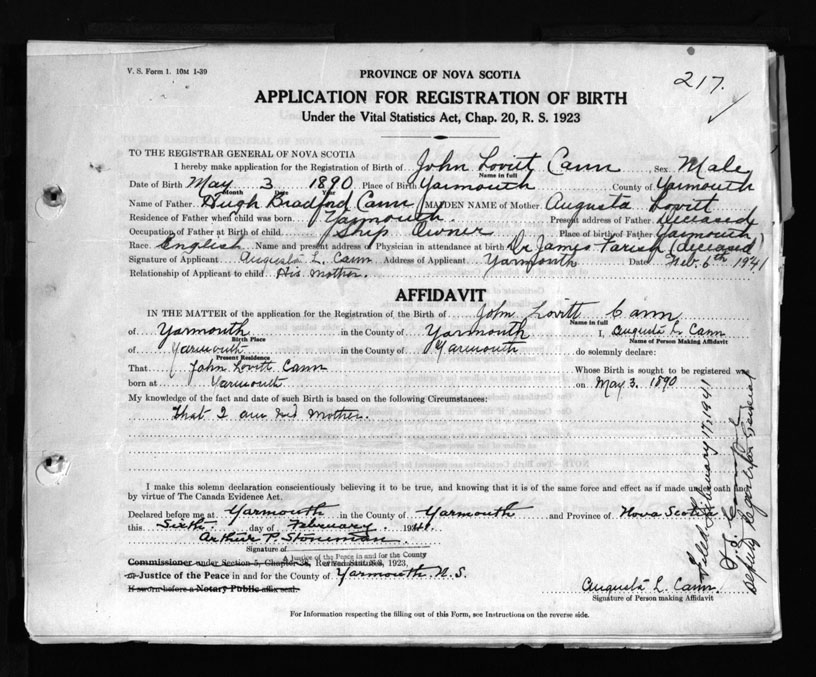 V. S. Form 1. 10M 1-39
217.
PROVINCE OF NOVA SCOTIA
APPLICATION FOR REGISTRATION OF BIRTH
Under the Vital Statistics Act, Chap. 20, R. S. 1923
TO THE REGISTRAR GENERAL OF NOVA SCOTIA
I hereby make application for the Registration of Birth of John Lovitt Cann, Sex Male
Name in full
Date of Birth May 3 1890 Place of Birth Yarmouth County of Yarmouth
Month Date Year
Name of Father Hugh Bradford Cann MAIDEN NAME of Mother Augusta Lovitt
Residence of Father when child was born Yarmouth Present address of Father Deceased
Occupation of Father at Birth of child Ship Owner Place of birth of Father Yarmouth
Race English Name and present address of Physician in attendance at birth Dr James Farish (deceased)
Signature of Applicant Augusta L. Cann Address of Applicant Yarmouth Date Feb. 6th 1941
Relationship of Applicant to child His mother.
AFFIDAVIT
IN THE MATTER of the application for the Registration of the Birth of John Lovitt Cann
Name in full
of Yarmouth in the County of Yarmouth I, Augusta L. Cann
Birth Place Name of Person Making Affidavit
of Yarmouth in the County of Yarmouth do solemnly declare:
Present Residence
That John Lovitt Cann Whose Birth is sought to be registered was
born at Yarmouth on May 3. 1890
My knowledge of the fact and date of such Birth is based on the following Circumstances:
That I am his mother.
I make this solemn declaration conscientiously believing it to be true, and knowing that it is of the same force and effect as if made under oath and
by virtue of The Canada Evidence Act.
Declared before me at Yarmouth in the County of Yarmouth and Province of Nova Scotia
this Sixth day of February 1941.
Arthur P. Stoneman.
Signature of
A Justice of the Peace in and for the County
Commissioner under Section 5, Chapter Revised Statutes, 1923.
or Justice of the Peace in and for the County of Yarmouth N.S.
If sworn before a Notary Public affix seal.
Augusta L. Cann.
Signature of Person making Affidavit
For Information respecting the filling out of this Form, see Instructions on the reverse side.
Filed February 17, 1941
Deputy Registrar General